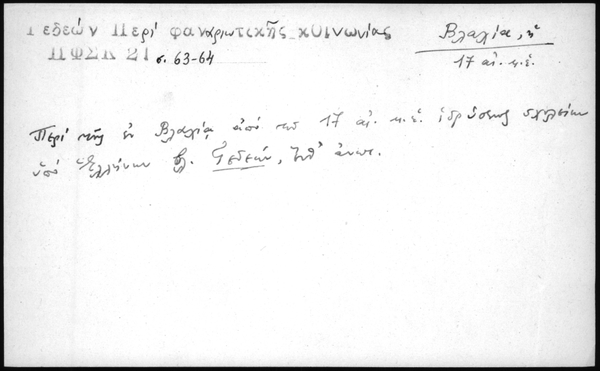 Γεδεών Περί φαναριωτικῆς κοινωνίας
ΠΦΣΚ 21 σ. 63-64
Βλαχία, ἡ
17 αἰ. κ.ἑ.
Περί τῆς ἐν Βλαχίᾳ ἀπό τοῦ 17 αἰ. κ.ἑ. ἱδρύσεως σχολείων
ὑπό Ἑλλήνων βλ. Γεδεών, ἔνθ' ἀνωτ.